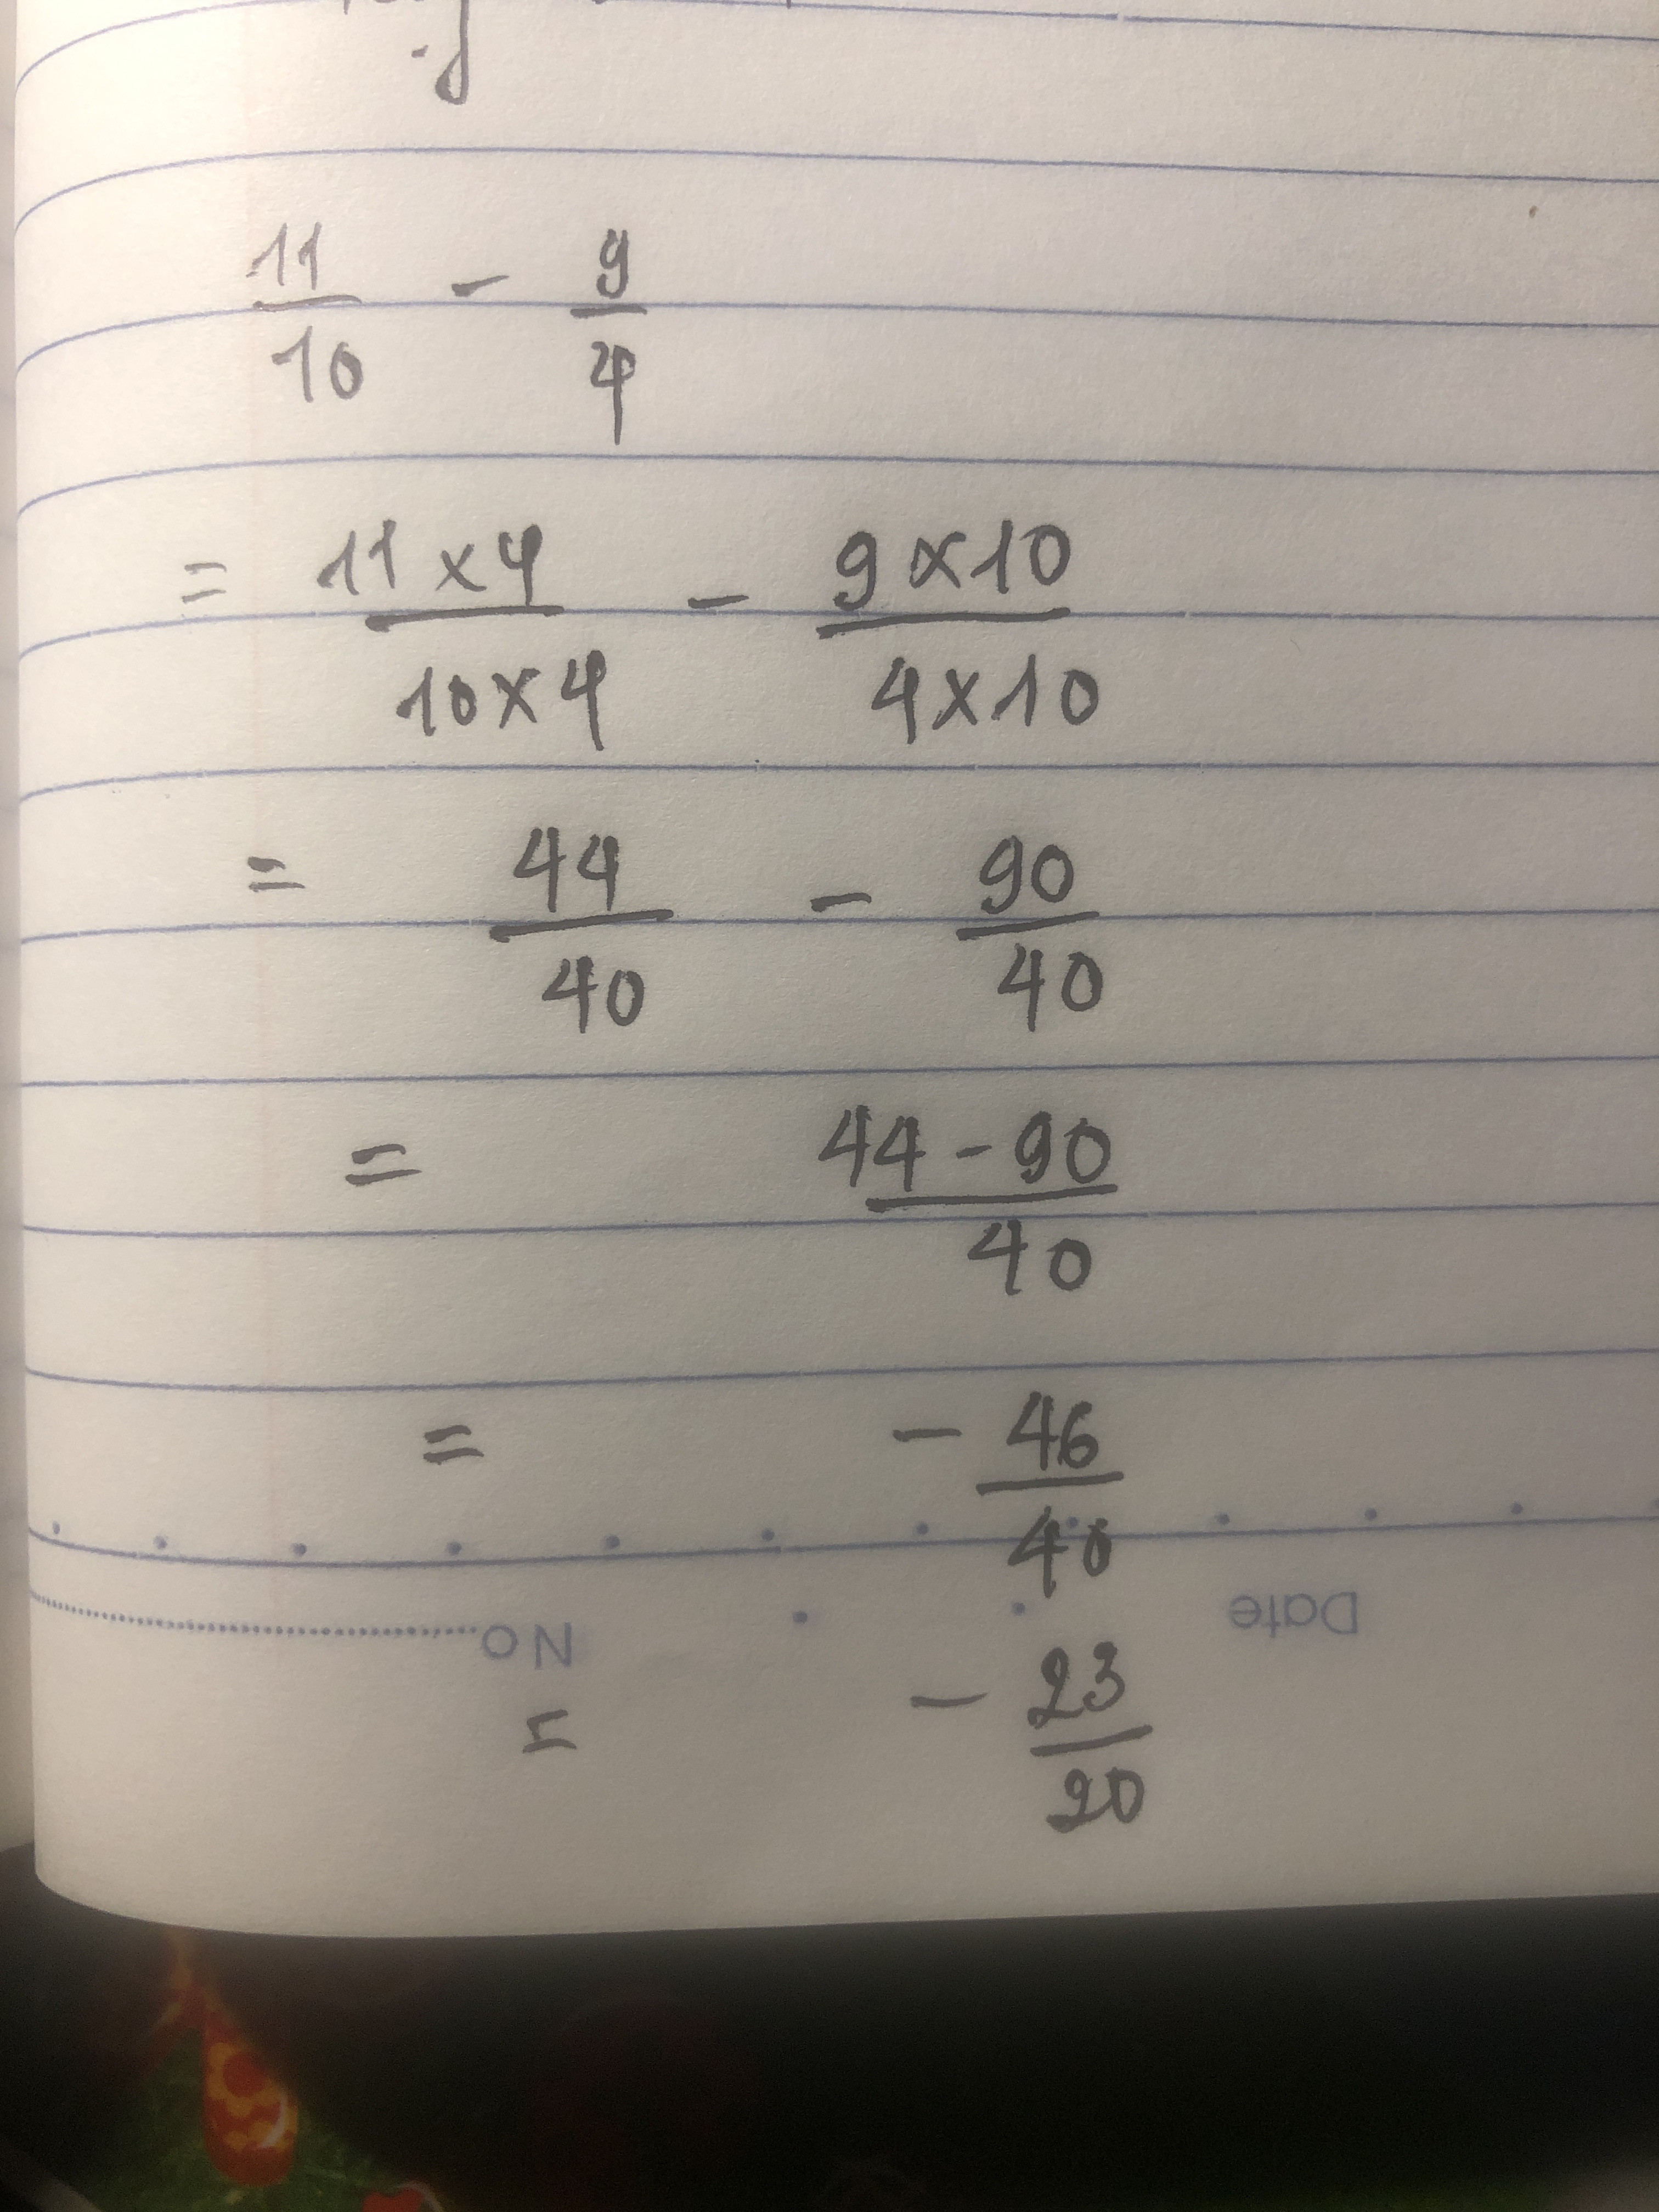 11/10 - 9/4
= 11×4/10×4 - 9×10/4×10
= 44/40 - 90/40
= 44-90/40
= - 46/40
No Date
= - 23/20